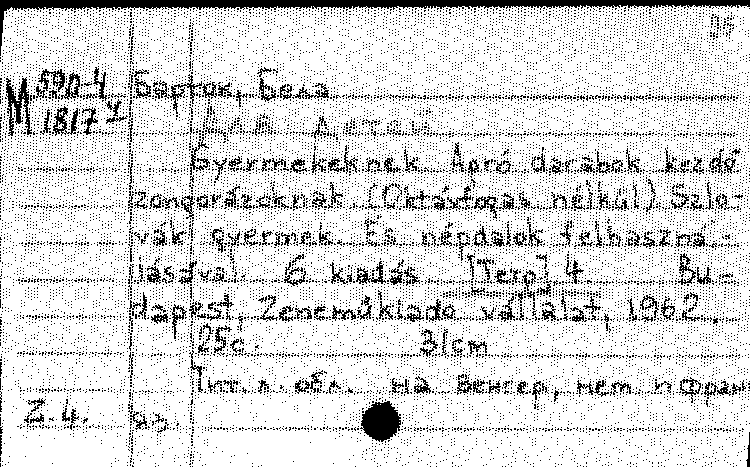 35
М 590-4 Барток, Бела
1817 у
Для детей
Gyermekeknek. Apró darabok kezdő
zongorázoknak (Oktávfogas nélkül) Szlo-
vák gyermek. És népdalok felhaszná-
lásával. 6 kiadás. [Тетр] 4. Bu-
dapest, Zeneműkiado vállalat, 1962.
25с. 31cm
Тит. л. обл. на венгер, нем и фран
Z.4. яз.